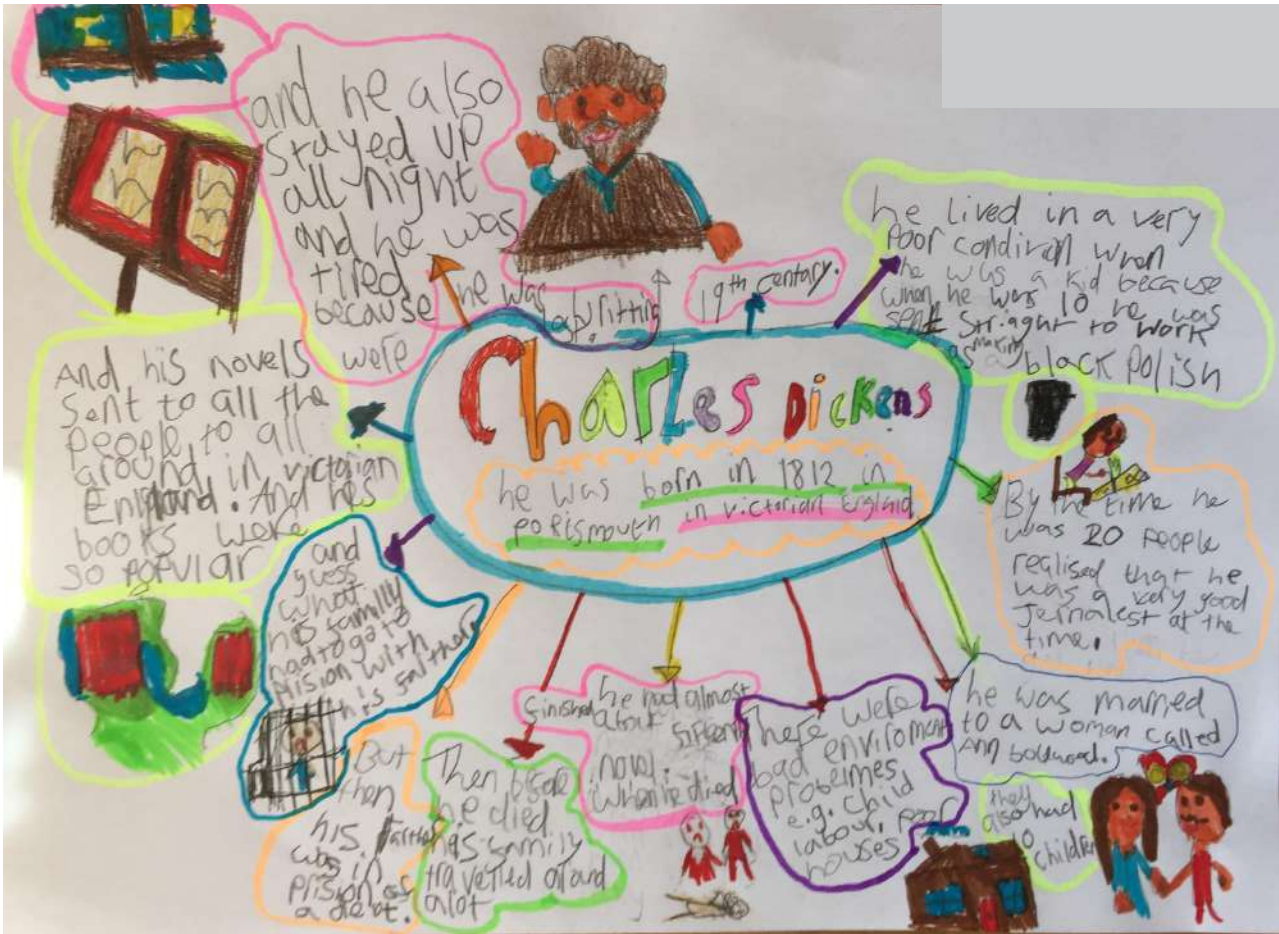 Charles Dickens
he was born in 1812 in
portsmouth in victorian England
and he also
stayed up
all night
and he was
tired
because he was
writting
19th centary.
he lived in a very
poor condiran when
he was a kid because
when he was 10 he was
sent striaght to work
as making
a black polish
By the time he
was 20 people
realised that he
was a very good
Jernalest at the
time.
he was married
to a woman called
Ann
they
also had
10
children
There were
bad enviroment
probelmes
e.g. child
labour, poor
houses
he had almost
finished
fifteen
novel.
when he died
Then before
he died
his family
travelled around
alot
But
then
his farther
was in
prision of
a debt.
and
guess
what
his familly
had to go to
prision with
his farther
And his novels were
sent to all the
people, to all
around in victorian
England. And his
books were
so popular